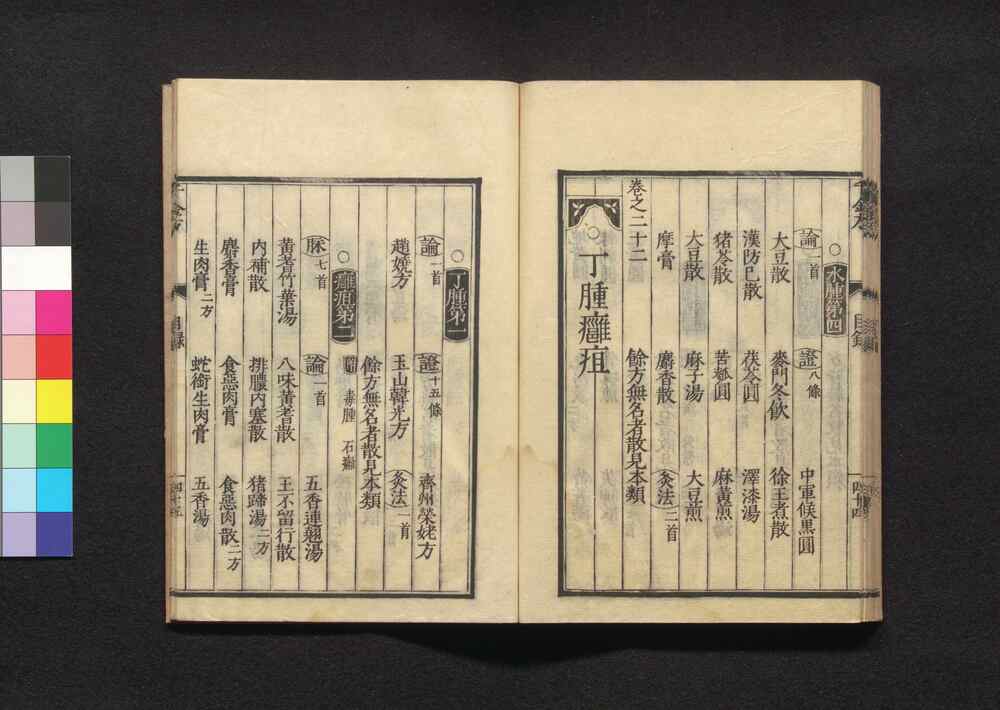 水腫第四
論一首 證八條 中軍候黒圓
大豆散 麥門冬飲 徐王煮散
漢防巳散 茯苓圓 澤漆湯
猪苓散 苦瓠圓 麻黄煎
大豆散 麻子湯 大豆煎
摩膏 麝香散 灸法三首
卷之二十二 餘方無名者散見本類
丁腫癰疽
丁腫第一
論一首 證十五條 齊州榮姥方
趙娆方 玉山韓光方 灸法一首
餘方無名者散見本類
癰疽第二 毒腫 石癰
脉七首 論一首 五香連翹湯
黄耆竹葉湯 八味黄耆散 王不留行散
内補散 排膿内塞散 猪蹄湯二方
麝香膏 食惡肉膏 食惡肉散二方
生肉膏二方 蛇銜生肉膏 五香湯
目録